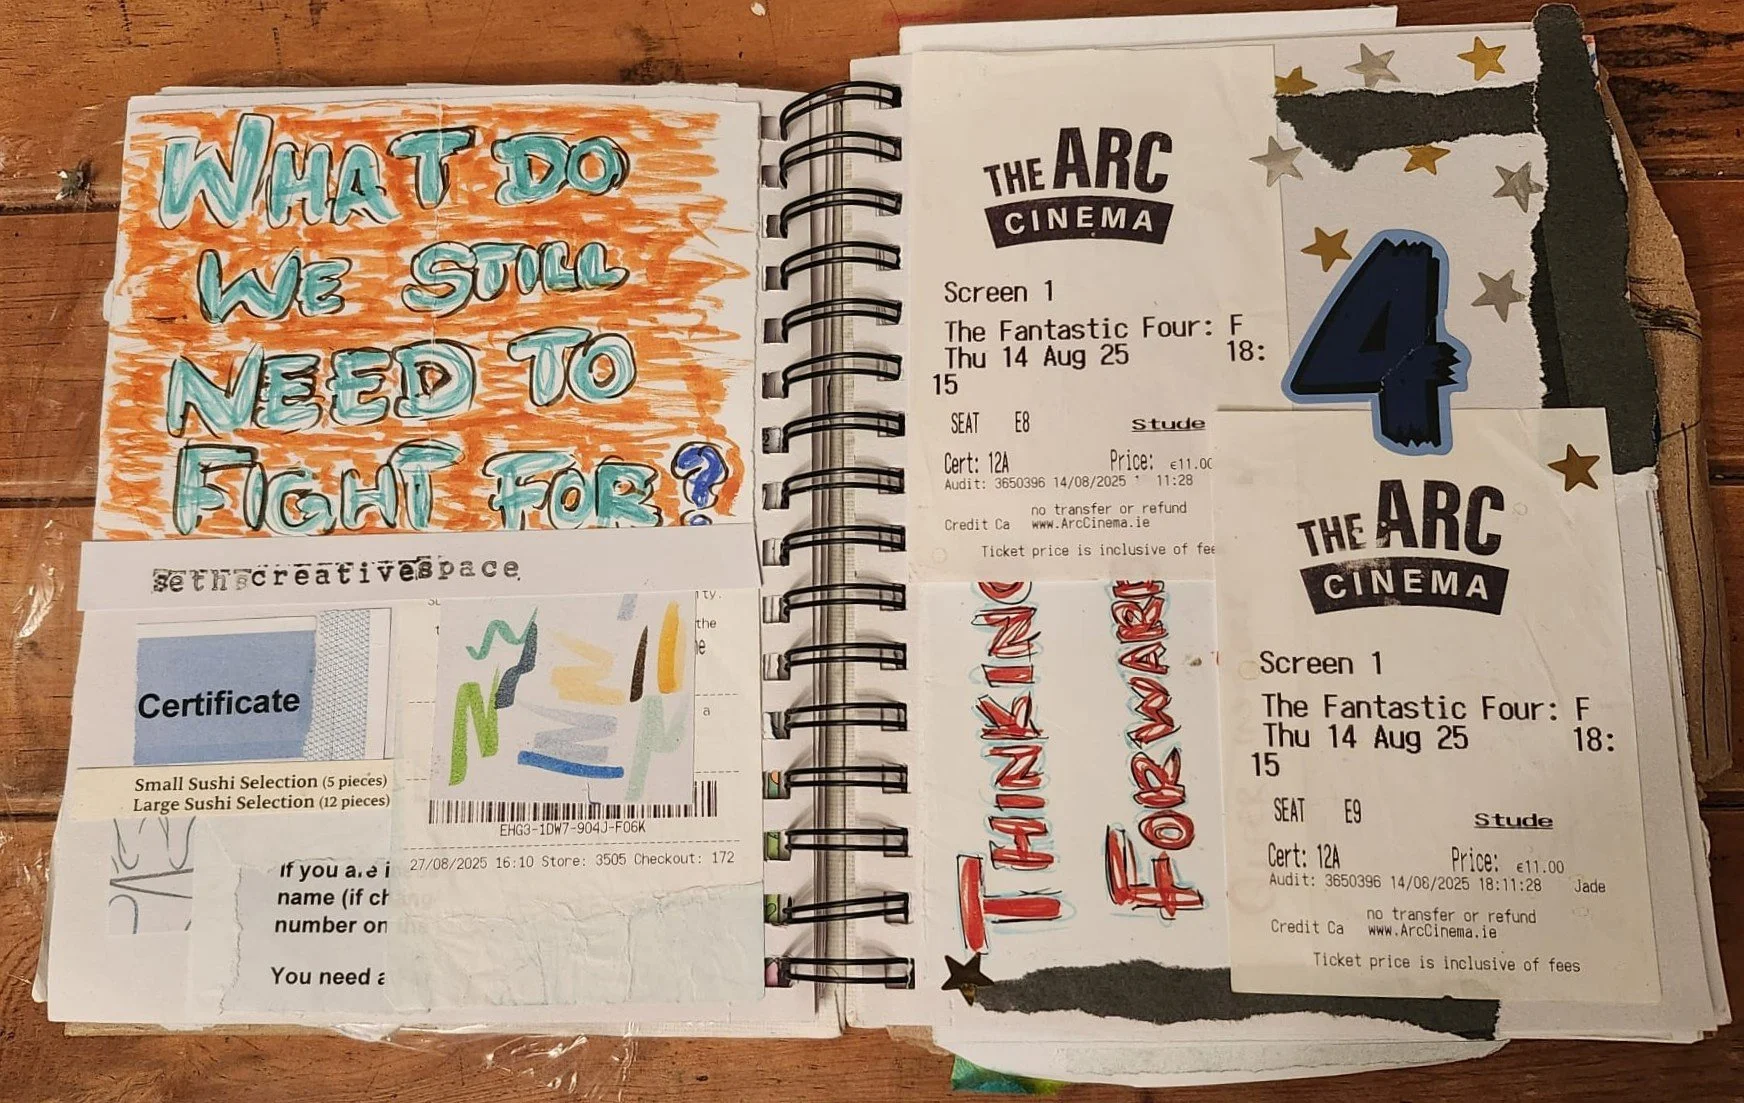 WHAT DO
WE STILL
NEED TO
FIGHT FOR?
sethscreativespace
Certificate
Small Sushi Selection (5 pieces)
Large Sushi Selection (12 pieces)
If you are i
name (if ch
number on
You need a
ty.
the
e
a
EHG3-1DW7-904J-F06K
27/08/2025 16:10 Store: 3505 Checkout: 172
THE ARC
CINEMA
Screen 1
The Fantastic Four: F
Thu 14 Aug 25 18:
15
SEAT E8 Stude
Cert: 12A Price: €11.00
Audit: 3650396 14/08/2025 11:28
no transfer or refund
Credit Ca www.ArcCinema.ie
Ticket price is inclusive of fee
4
THINKING
FORWARD
THE ARC
CINEMA
Screen 1
The Fantastic Four: F
Thu 14 Aug 25 18:
15
SEAT E9 Stude
Cert: 12A Price: €11.00
Audit: 3650396 14/08/2025 18:11:28 Jade
no transfer or refund
Credit Ca www.ArcCinema.ie
Ticket price is inclusive of fees